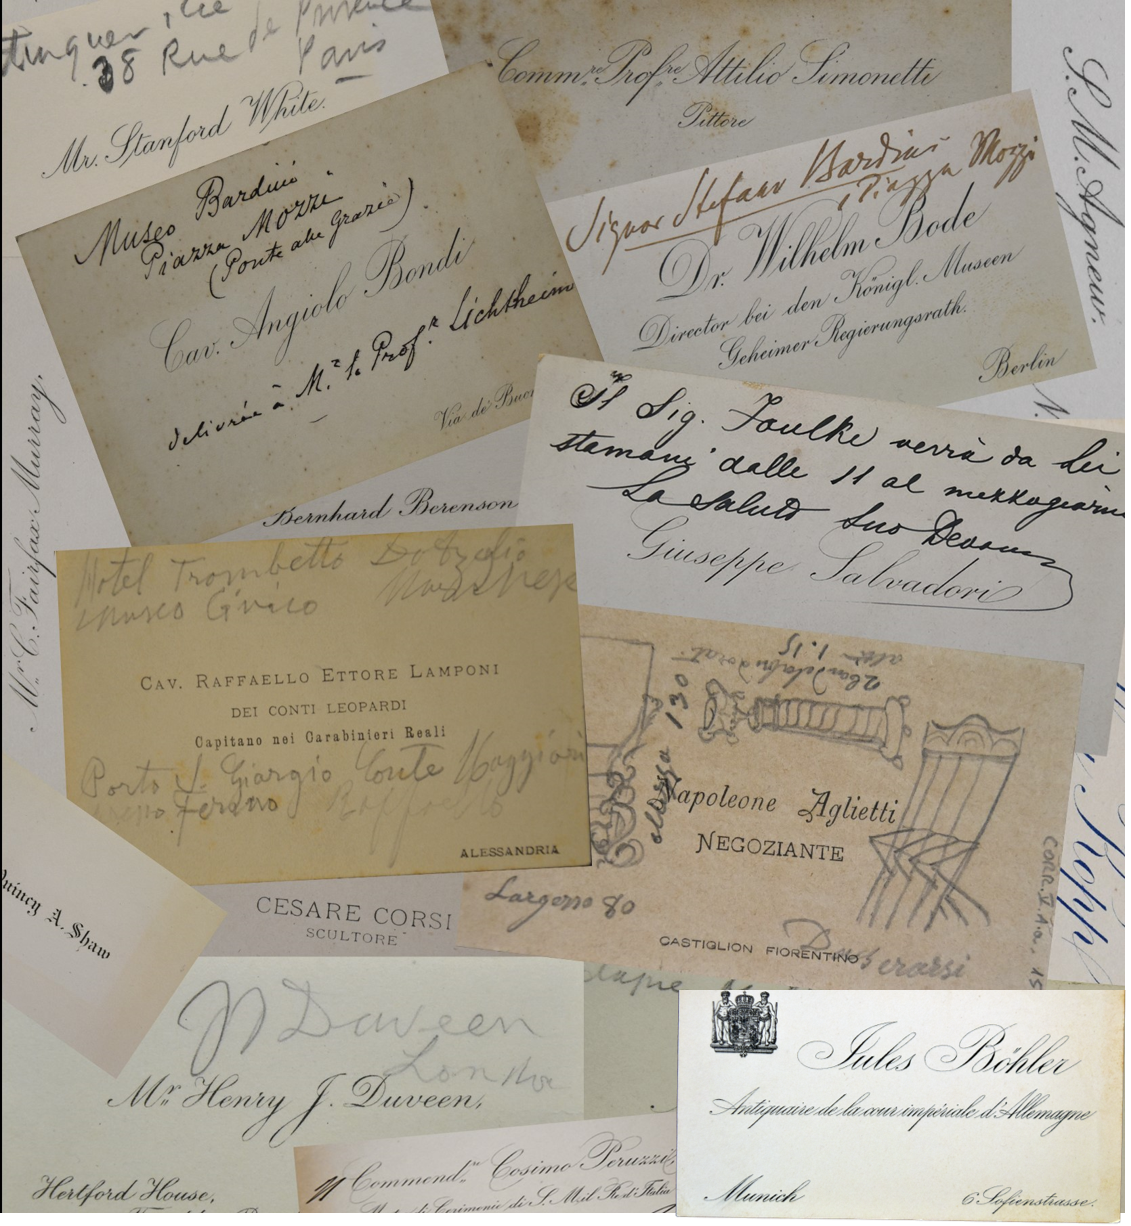 38 Rue de Provence
Paris
Mr. Stanford White.
Comm.re Prof.re Attilio Simonetti
Pittore
S. M. Agnew.
Museo Bardini
Piazza Mozzi
(Ponte alle Grazie)
Cav. Angiolo Bondi
delivrée à M.r le Prof.r Lichtheim
Via de'
Signor Stefano Bardini
Piazza Mozzi
Dr. Wilhelm Bode
Director bei den Königl. Museen
Geheimer Regierungsrath.
Berlin
N.
Mr. C. Fairfax Murray.
Bernhard Berenson
Il Sig. Foulke verrà da lei
stamani dalle 11 al mezzogiorno
La saluto Suo Devom
Giuseppe Salvadori
Hotel Trombetta
Museo Civico
CAV. RAFFAELLO ETTORE LAMPONI
DEI CONTI LEOPARDI
Capitano nei Carabinieri Reali
Porto S. Giorgio Conte
Fermo Raffaello
ALESSANDRIA
alt 1.15
altezza 130
Napoleone Aglietti
NEGOZIANTE
Largezza 80
CASTIGLION FIORENTINO
CORR. V. A.
Quincy A. Shaw
CESARE CORSI
SCULTORE
Duveen
London
Mr. Henry J. Duveen,
Hertford House,
Commend. Cosimo Peruzzi
di Cerimonie di S. M. il Re d'Italia
Jules Böhler
Antiquaire de la cour impériale d'Allemagne
Munich
6 Sofienstrasse.